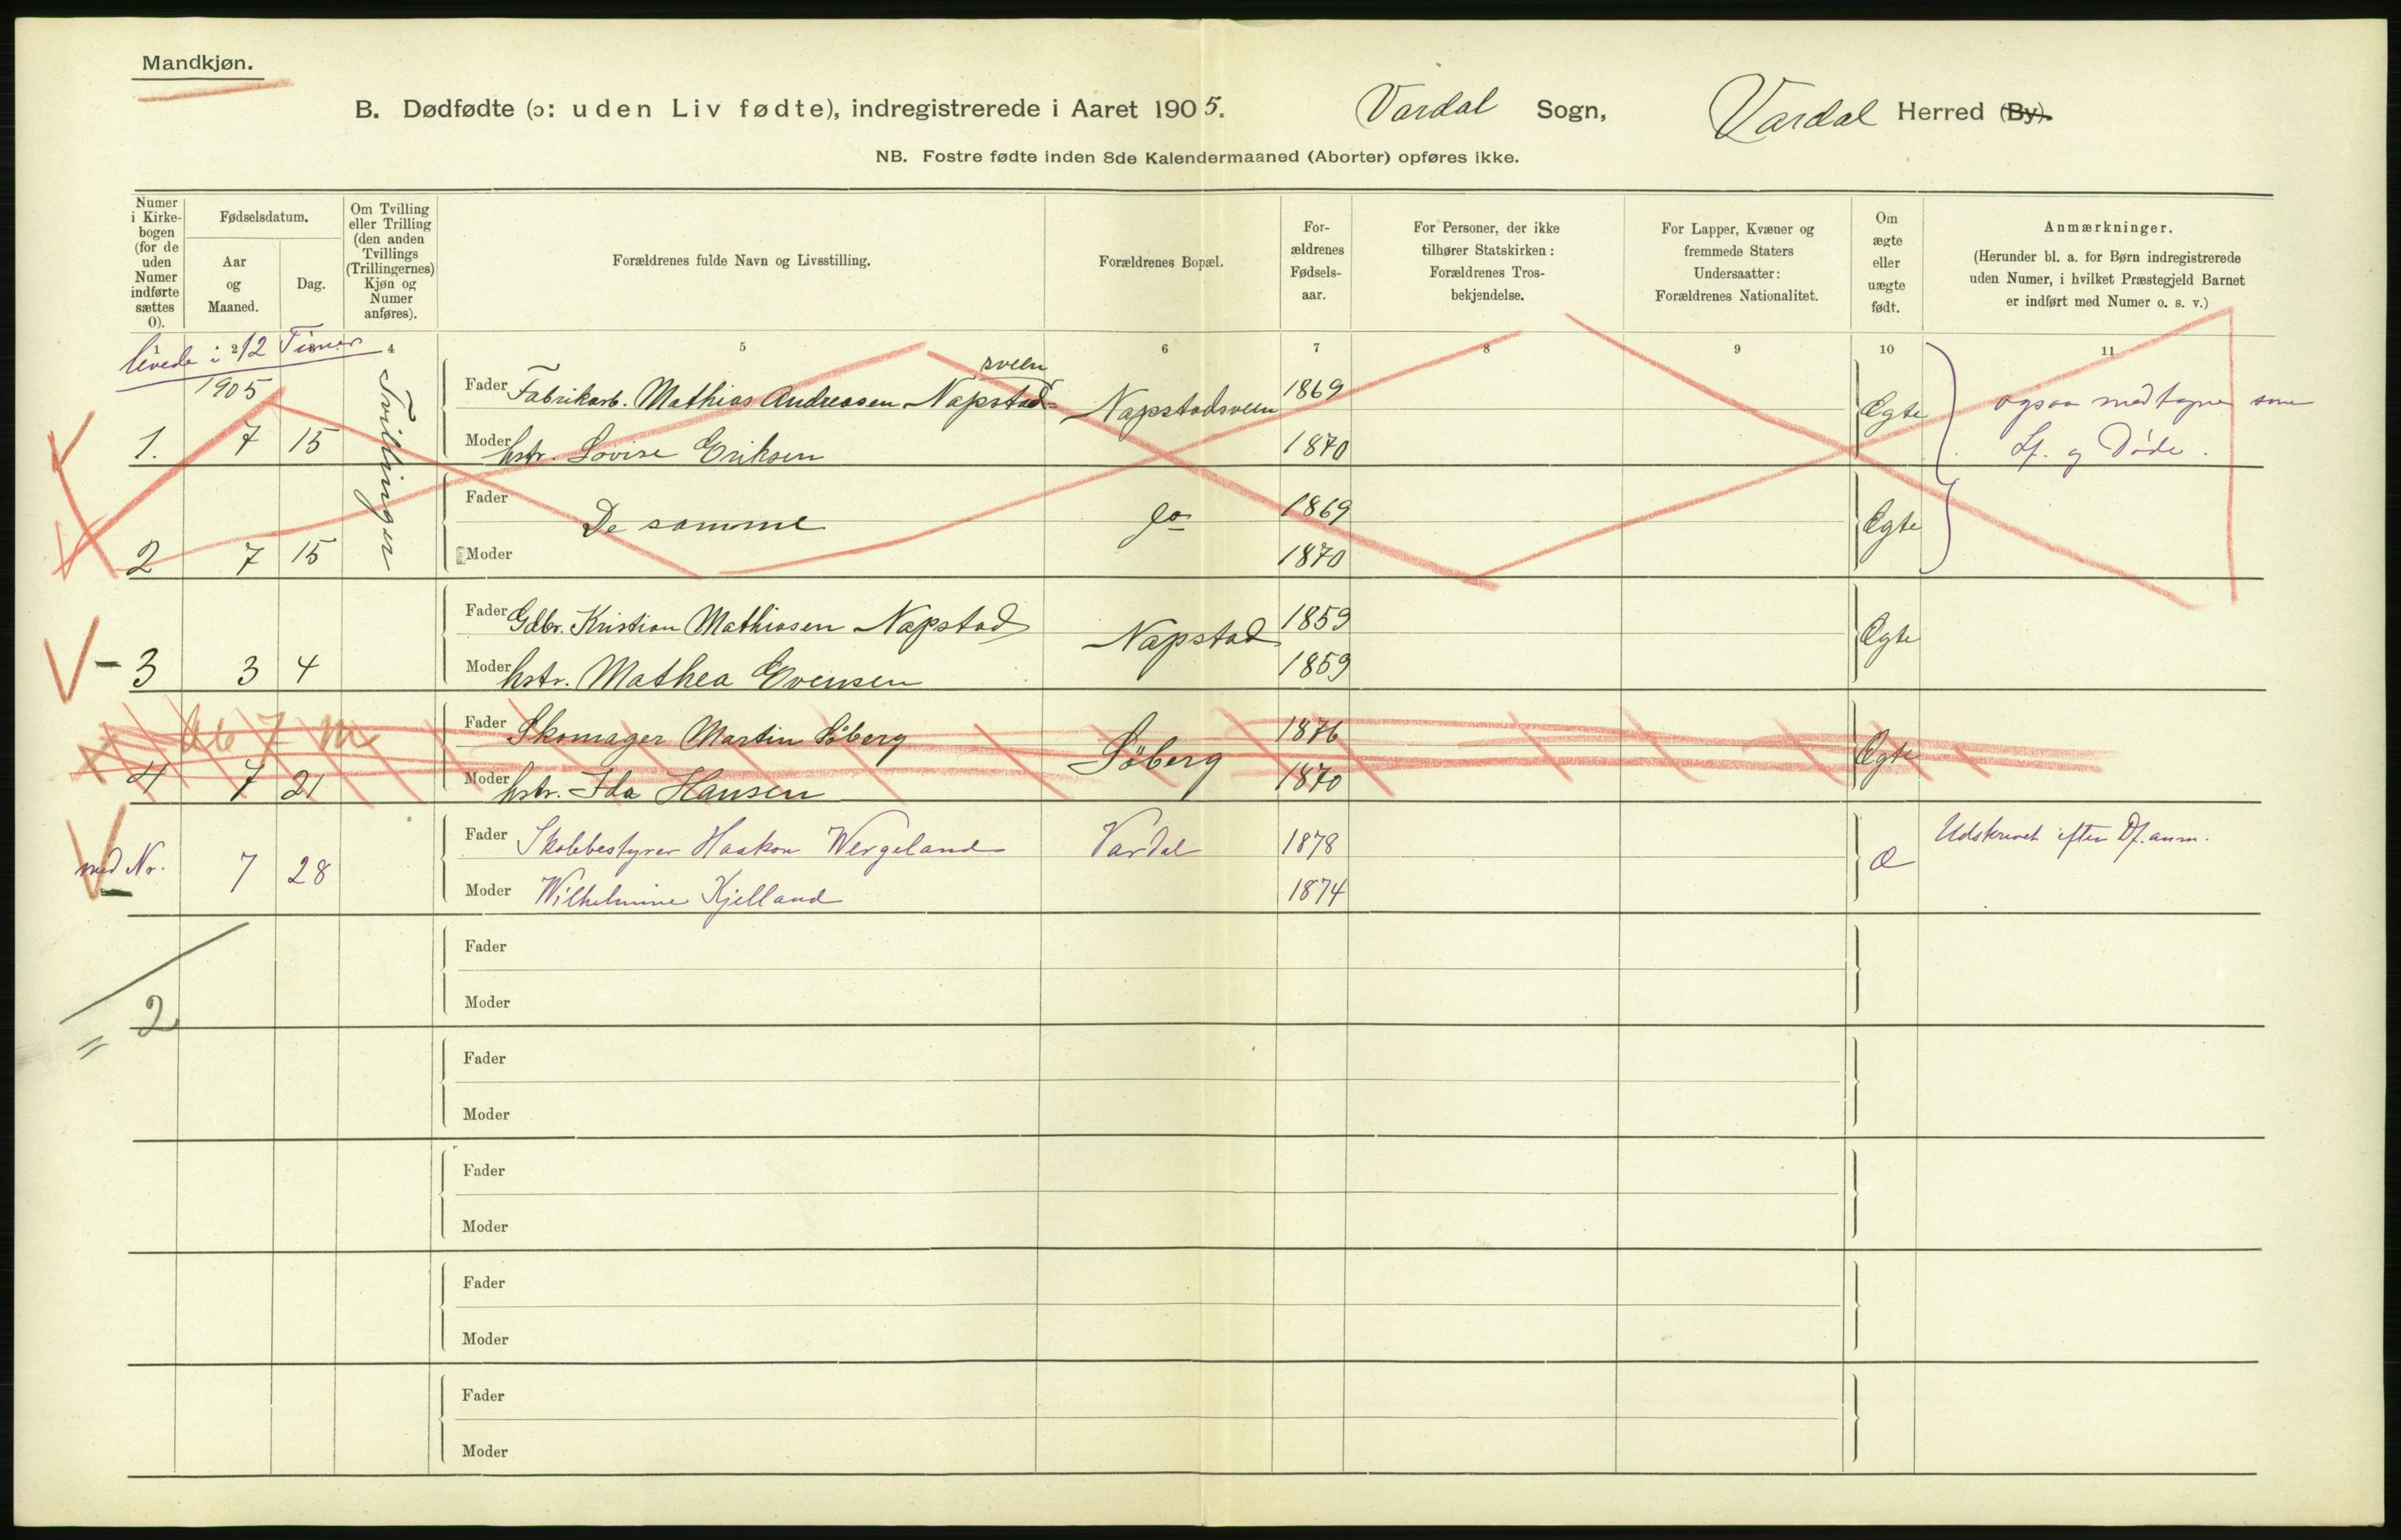 Mandkjøn.
B. Dødfødte (ɔ: uden Liv fødte), indregistrerede i Aaret 1905. Vardal Sogn, Vardal Herred (By).
NB. Fostre fødte inden 8de Kalendermaaned (Aborter) opføres ikke.
Numer i Kirkebogen (for de uden Numer indførte sættes 0).
Fødselsdatum.
Aar og Maaned.
Dag.
Om Tvilling eller Trilling (den anden Tvillings (Trillingernes) Kjøn og Numer anføres).
Forældrenes fulde Navn og Livsstilling.
Forældrenes Bopæl.
Forældrenes Fødselsaar.
For Personer, der ikke tilhører Statskirken: Forældrenes Trosbekjendelse.
For Lapper, Kvæner og fremmede Staters Undersaatter: Forældrenes Nationalitet.
Om ægte eller uægte født.
Anmærkninger.
(Herunder bl. a. for Børn indregistrerede uden Numer, i hvilket Præstegjeld Barnet er indført med Numer o. s. v.)
1 2 3 4 5 6 7 8 9 10 11
levede i 12 Timer
1905
Tvillinger
sveen
Fader Fabrikarb. Mathias Andreasen Napstad Napstadsveen 1869 Ægte ogsaa medtagne som
1. 7 15 Moder hstr. Lovise Eriksen 1870 Lf. og Døde.
Fader De samme do 1869 Ægte
2 7 15 Moder 1870
Fader Gdbr. Kristian Mathiasen Napstad Napstad 1859 Ægte
3 3 4 Moder hstr. Mathea Evensen 1859
Fader Skomager Martin Söberg Söberg 1876 Ægte
4 7 21 Moder hstr. Ida Hansen 1870
Fader Skolebestyrer Haakon Wergeland Vardal 1878 Æ Udskrevet efter Df. anm.
med Nr. 7 28 Moder Wilhelmine Kjelland 1874
Fader
Moder
= 2
Fader
Moder
Fader
Moder
Fader
Moder
Fader
Moder